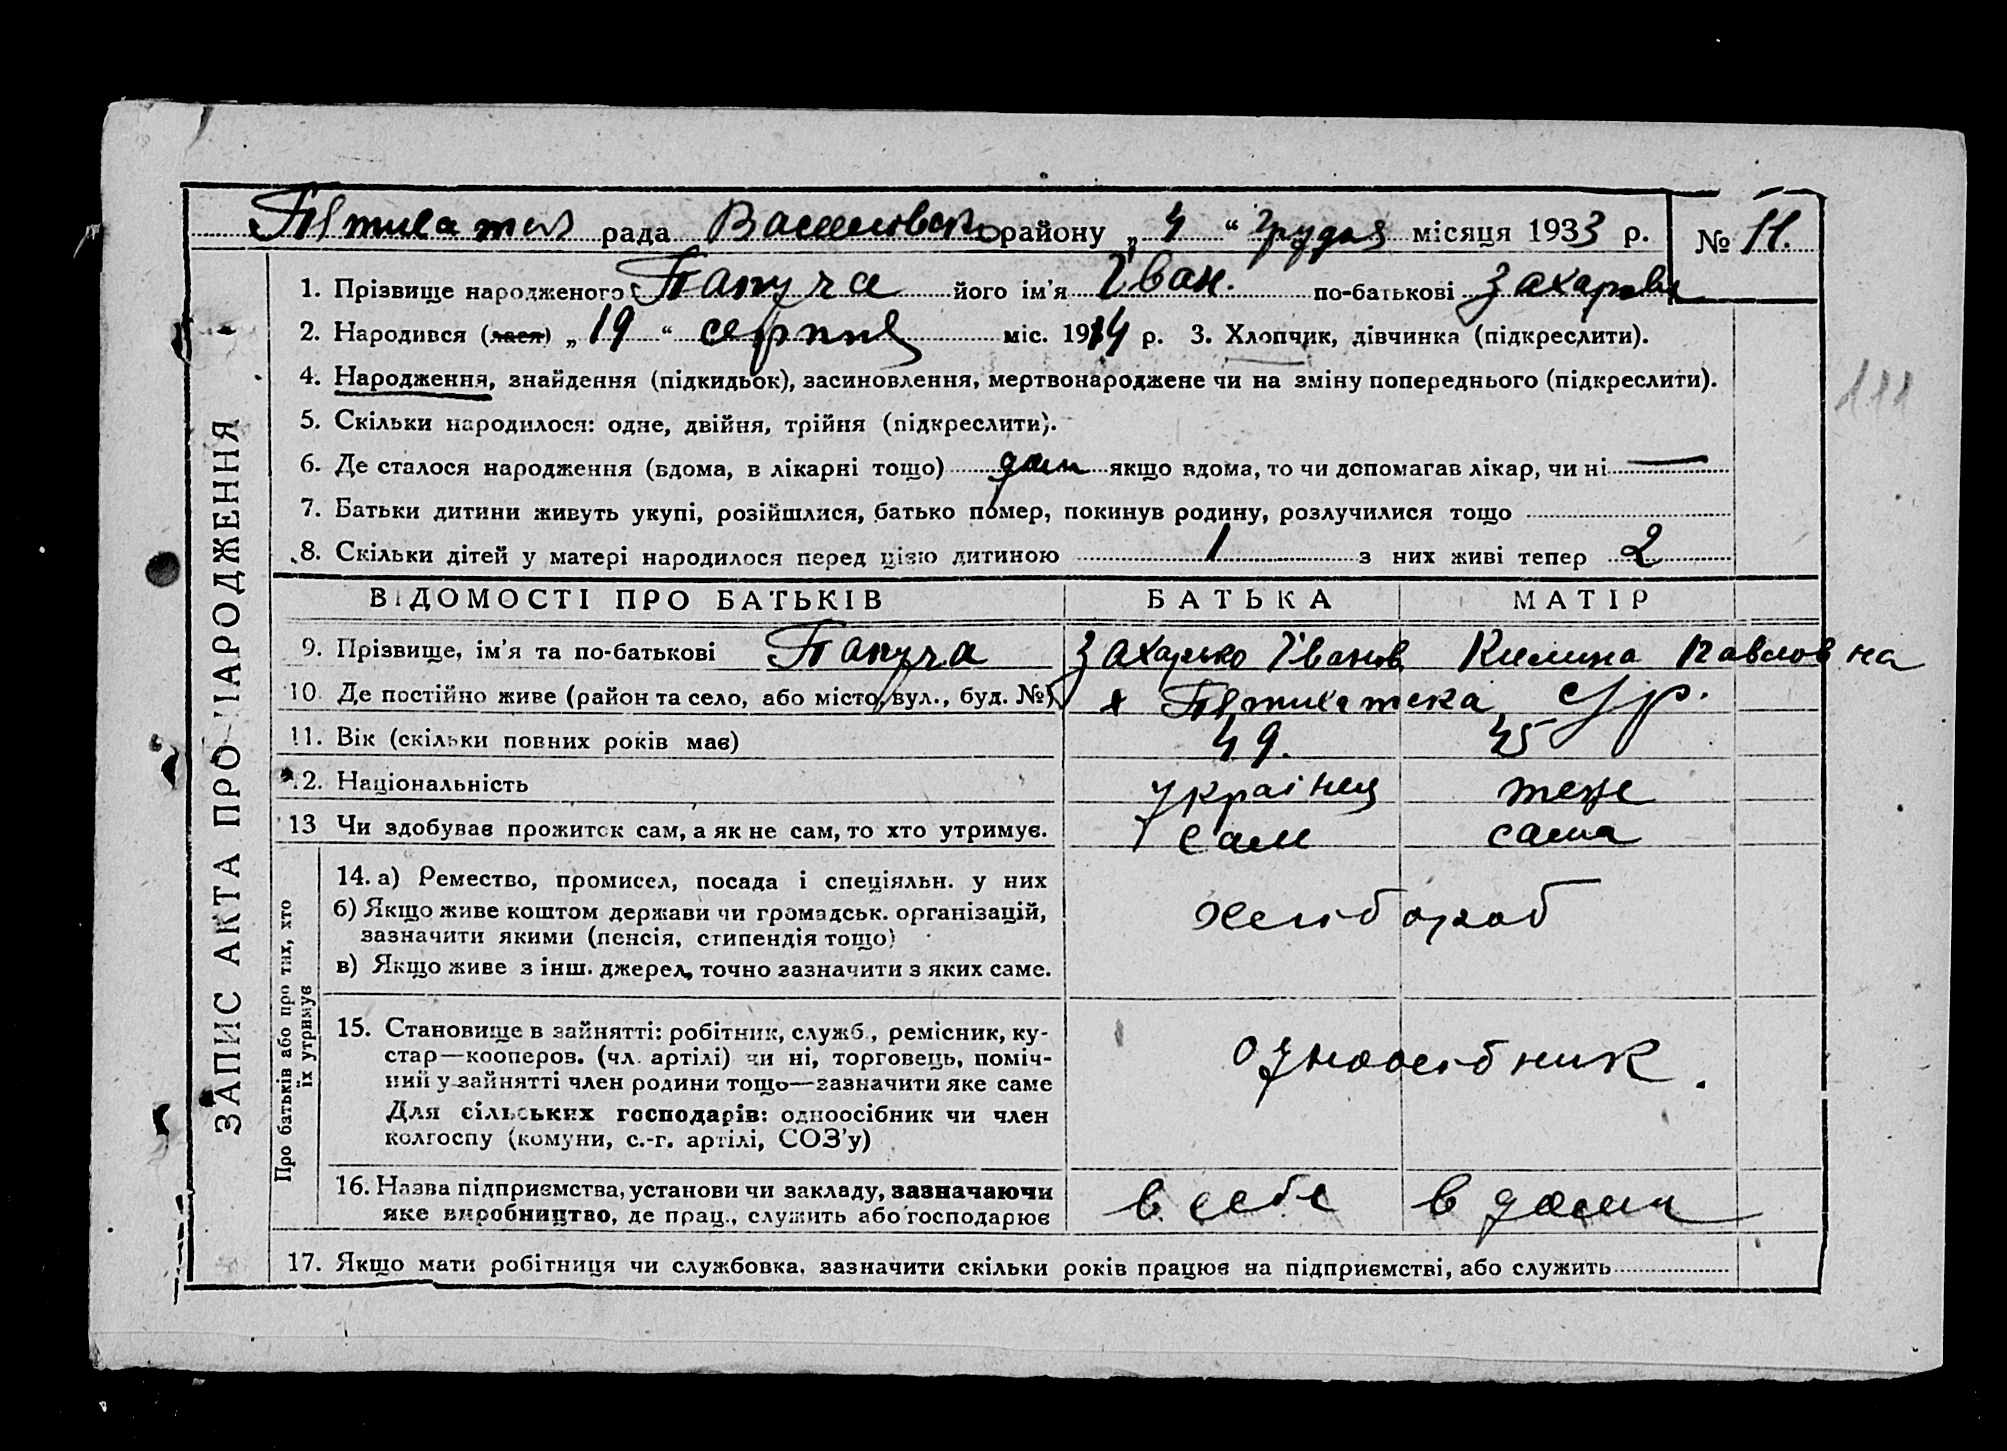 П'ятихатск рада Васильовського району „4“ грудня місяця 1933 р. № 11.
1. Прізвище народженого Папуча його ім'я Іван. по-батькові Захарови
2. Народився (лася) „19“ серпня міс. 1914 р. 3. Хлопчик, дівчинка (підкреслити).
4. Народження, знайдення (підкидьок), засиновлення, мертвонароджене чи на зміну попереднього (підкреслити).
5. Скільки народилося: одне, двійня, трійня (підкреслити).
6. Де сталося народження (вдома, в лікарні тощо) дома якщо вдома, то чи допомагав лікар, чи ні —
7. Батьки дитини живуть укупі, розійшлися, батько помер, покинув родину, розлучилися тощо
8. Скільки дітей у матері народилося перед цією дитиною 1 з них живі тепер 2
ВІДОМОСТІ ПРО БАТЬКІВ БАТЬКА МАТІР
9. Прізвище, ім'я та по-батькові Папуча Захарько Іванов Килина Павловна
10. Де постійно живе (район та село, або місто, вул., буд. №) х П'ятихатска с/р.
11. Вік (скільки повних років має) 49. 45
12. Національність українец теже
13 Чи здобував прожиток сам, а як не сам, то хто утримує. Сам сама
14. а) Ремество, промисел, посада і спеціяльн. у них
б) Якщо живе коштом держави чи громадськ. організацій,
зазначити якими (пенсія, стипендія тощо)
в) Якщо живе з інш. джерел, точно зазначити з яких саме.
хлібороб
15. Становище в зайнятті: робітник, служб., ремісник, ку-
стар—кооперов. (чл. артілі) чи ні, торговець, поміч-
ний у зайнятті член родини тощо—зазначити яке саме
Для сільських господарів: одноосібник чи член
колгоспу (комуни, с.-г. артілі, СОЗ'у)
одноосібник.
16. Назва підприємства, установи чи закладу, зазначаючи
яке виробництво, де прац., служить або господарює
в себе в дома
17. Якщо мати робітниця чи службовка, зазначити скільки років працює на підприємстві, або служить
ЗАПИС АКТА ПРО НАРОДЖЕННЯ
Про батьків або про тих, хто
їх утримує
111